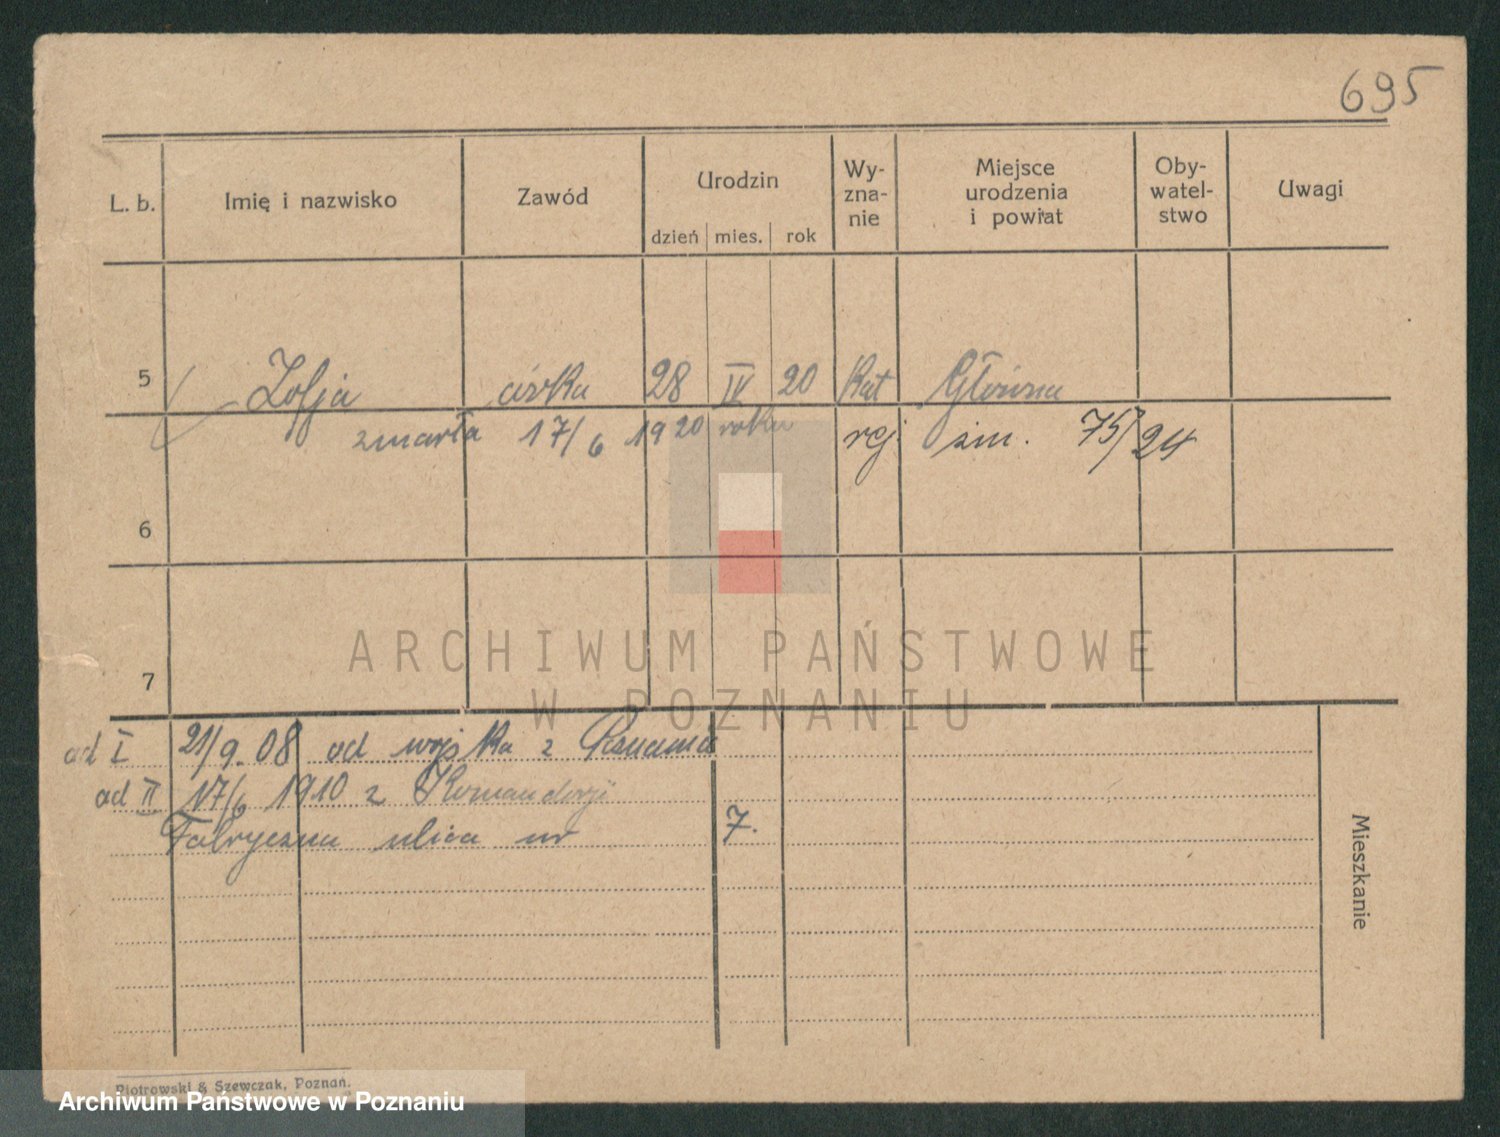 695
L. b. Imię i nazwisko Zawód Urodzin Wy-zna-nie Miejsce urodzenia i powiat Oby-watel-stwo Uwagi
dzień mies. rok
5 Zofja córka 28 IV 20 kat Główna
zmarła 17/6 1920 roku rej zm. 75/24
6
7
ARCHIWUM PAŃSTWOWE
W POZNANIU
ad I 21/9.08 od wojska z Poznania
ad II 17/6 1910 z Komandorji
Fabryczna ulica nr 7.
Mieszkanie
Piotrowski & Szewczak, Poznań.
Archiwum Państwowe w Poznaniu